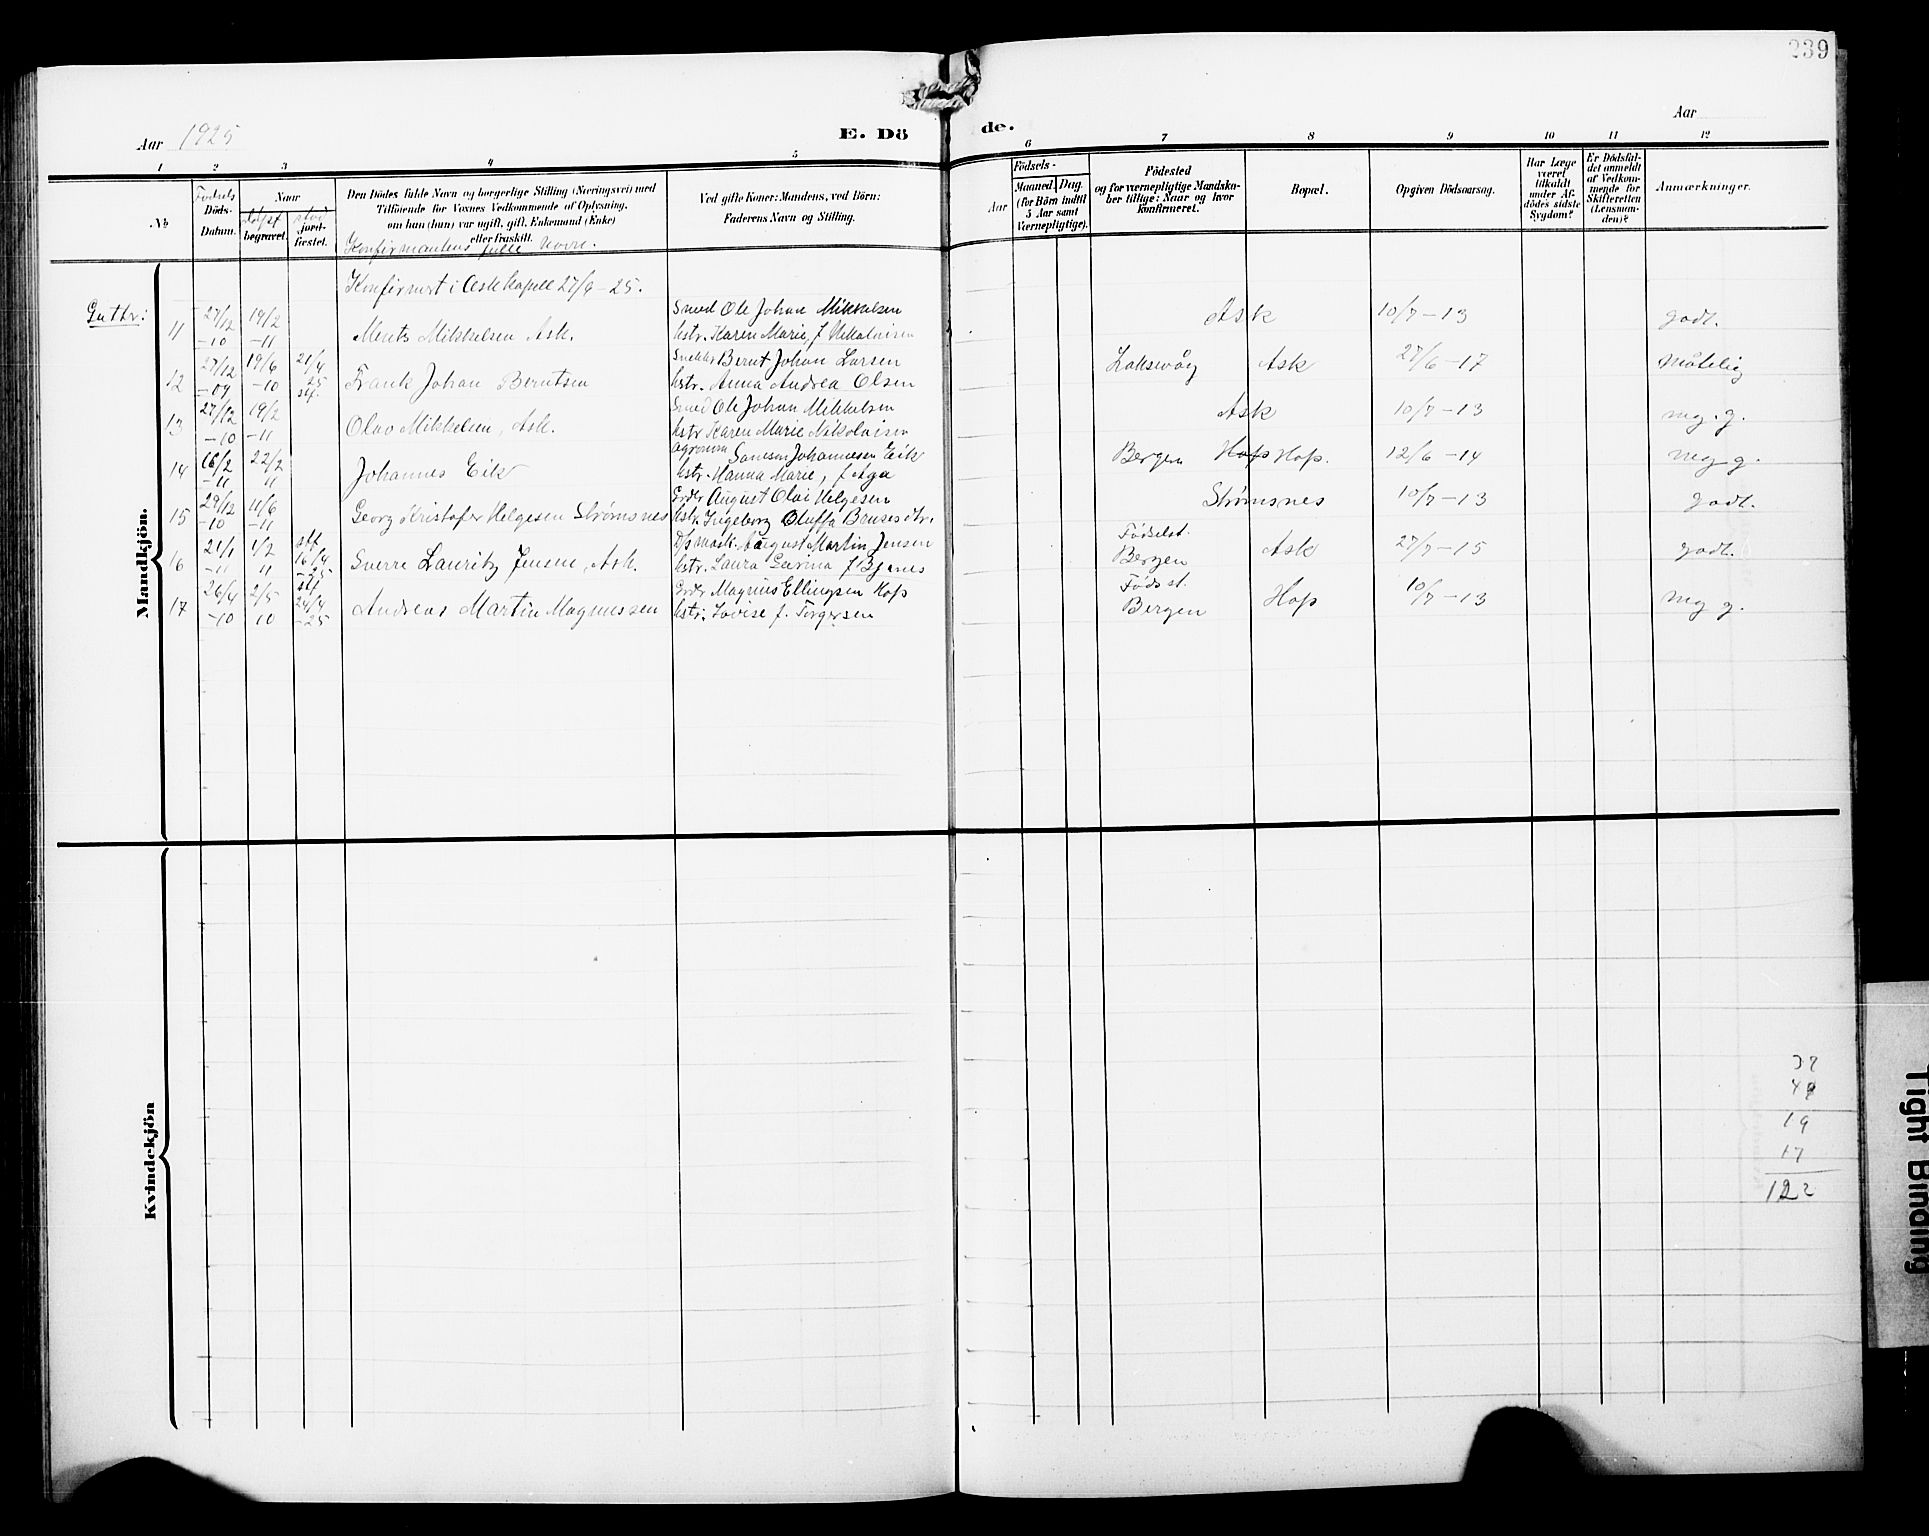 239
Aar 1925
E. Dö de.
Aar
1 2 3 4 5 6 7 8 9 10 11 12
№
Fødsels
Döds-
Datum.
Naar
begravet.
jord-
fæstet.
Den Dödes fulde Navn og borgerlige Stilling (Næringsvei) med
Tilföiende for Voxnes Vedkommende af Oplysning,
om han (hun) var ugift, gift, Enkemand (Enke)
eller fraskilt.
Konfirmantens fulle navn.
Ved gifte Koner: Mandens, ved Börn:
Faderens Navn og Stilling.
Födsels-
Aar
Maaned. Dag.
(for Börn indtil
5 Aar samt
Værnepligtige).
Födested
og for værnepligtige Mandska-
ber tillige: Naar og hvor
konfirmeret.
Bopæl.
Opgiven Dödsaarsag.
Har Læge
været
tilkaldt
under Af-
dödes sidste
Sygdom?
Er Dödsfal-
det anmeldt
af Vedkom-
mende for
Skifteretten
(Lensman-
den)?
Anmærkninger.
Mandkjön.
Konfirmert i Ask kapell 27/9-25.
Gutter:
11 27/12 -10 19/2 -11 Ments Mikkelsen Ask. Smed Ole Johan Mikkelsen
hstr. Karen Marie, f Nikolaisen Ask 10/7-13 godt.
12 27/12 -09 19/6 -10 21/4 25 Frank Johan Berntsen Bernt Johan Larsen
hstr. Anna Andrea Olsen Laksevåg Ask 27/6-17 måtelig
13 27/12 -10 19/2 -11 Olav Mikkelsen, Ask. Smed Ole Johan Mikkelsen
hstr Karen Marie Nikolaisen Ask 10/7-13 mg. g.
14 16/2 -11 22/2 11 Johannes Eik Agronom Johannesen Eik
hstr. Hanna Marie, f Aga Bergen Hop. 12/6-14 meg g.
15 29/12 -10 11/6 -11 Georg Kristofer Helgesen Strømsnes Grdr August Olai Helgesen
hstr. Ingeborg Oluffa Strømsnes 10/7-13 godt.
16 21/1 -11 1/2 11 16/4 Sverre Lauritz Jensen, Ask. August Martin Jensen
hstr. Laura Fødselst.
Bergen Ask 27/7-15 godt.
17 26/4 -10 2/5 10 24/4 -25 Andreas Martin Magnussen Grdr Magnus Ellingsen Hop
hstr. Lovise f. Torgersen Føds st.
Bergen Hop 10/7-13 mg g.
Kvindekjön
19
17
122
Tight Binding